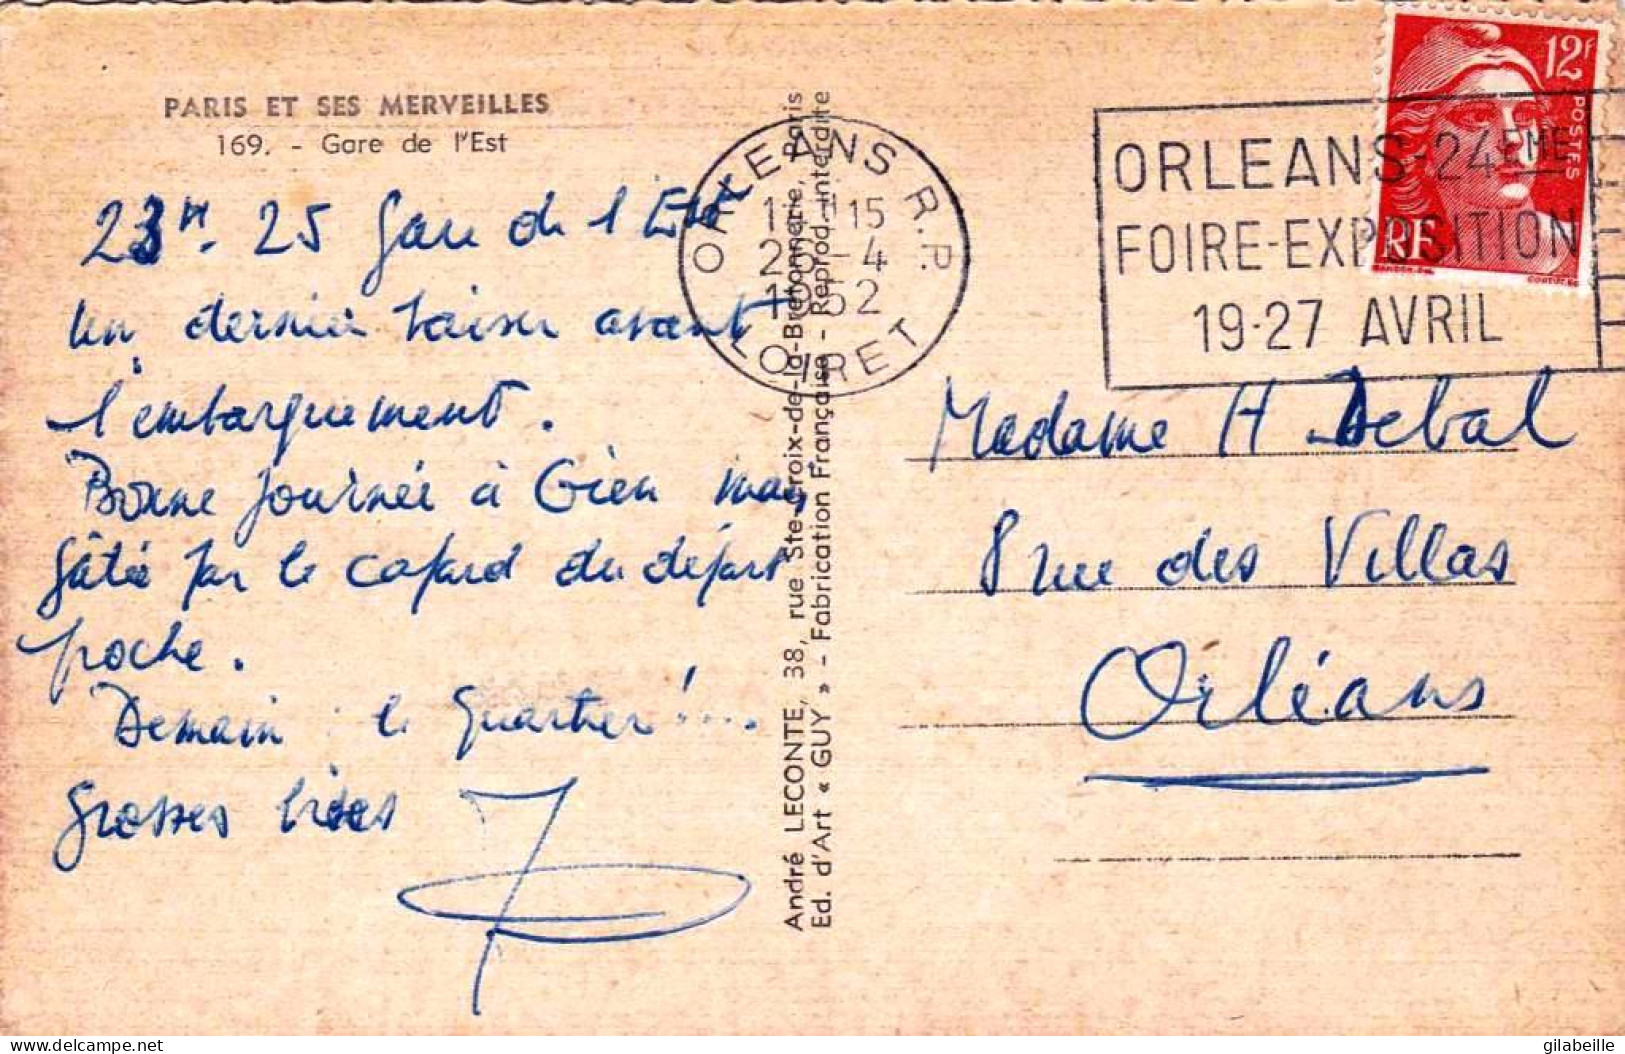 PARIS ET SES MERVEILLES
169. - Gare de l'Est
23H. 25 Gare de l'Est
un dernier baiser avant
l'embarquement.
Bonne journée à Gien mais
gâtée par le cafard du départ
proche.
Demain le quartier !...
grosses bises
André LECONTE, 38, rue Ste-Croix-de-la-Bretonnerie, Paris
Ed. d'Art « GUY » - Fabrication Française - Reprod. interdite
ORLEANS R.P.
15
20-4
1952
LOIRET
ORLEANS-24EME
FOIRE-EXPOSITION
19-27 AVRIL
12F
POSTES
RF
Madame H Debal
8 rue des Villas
Orléans
gilabeille